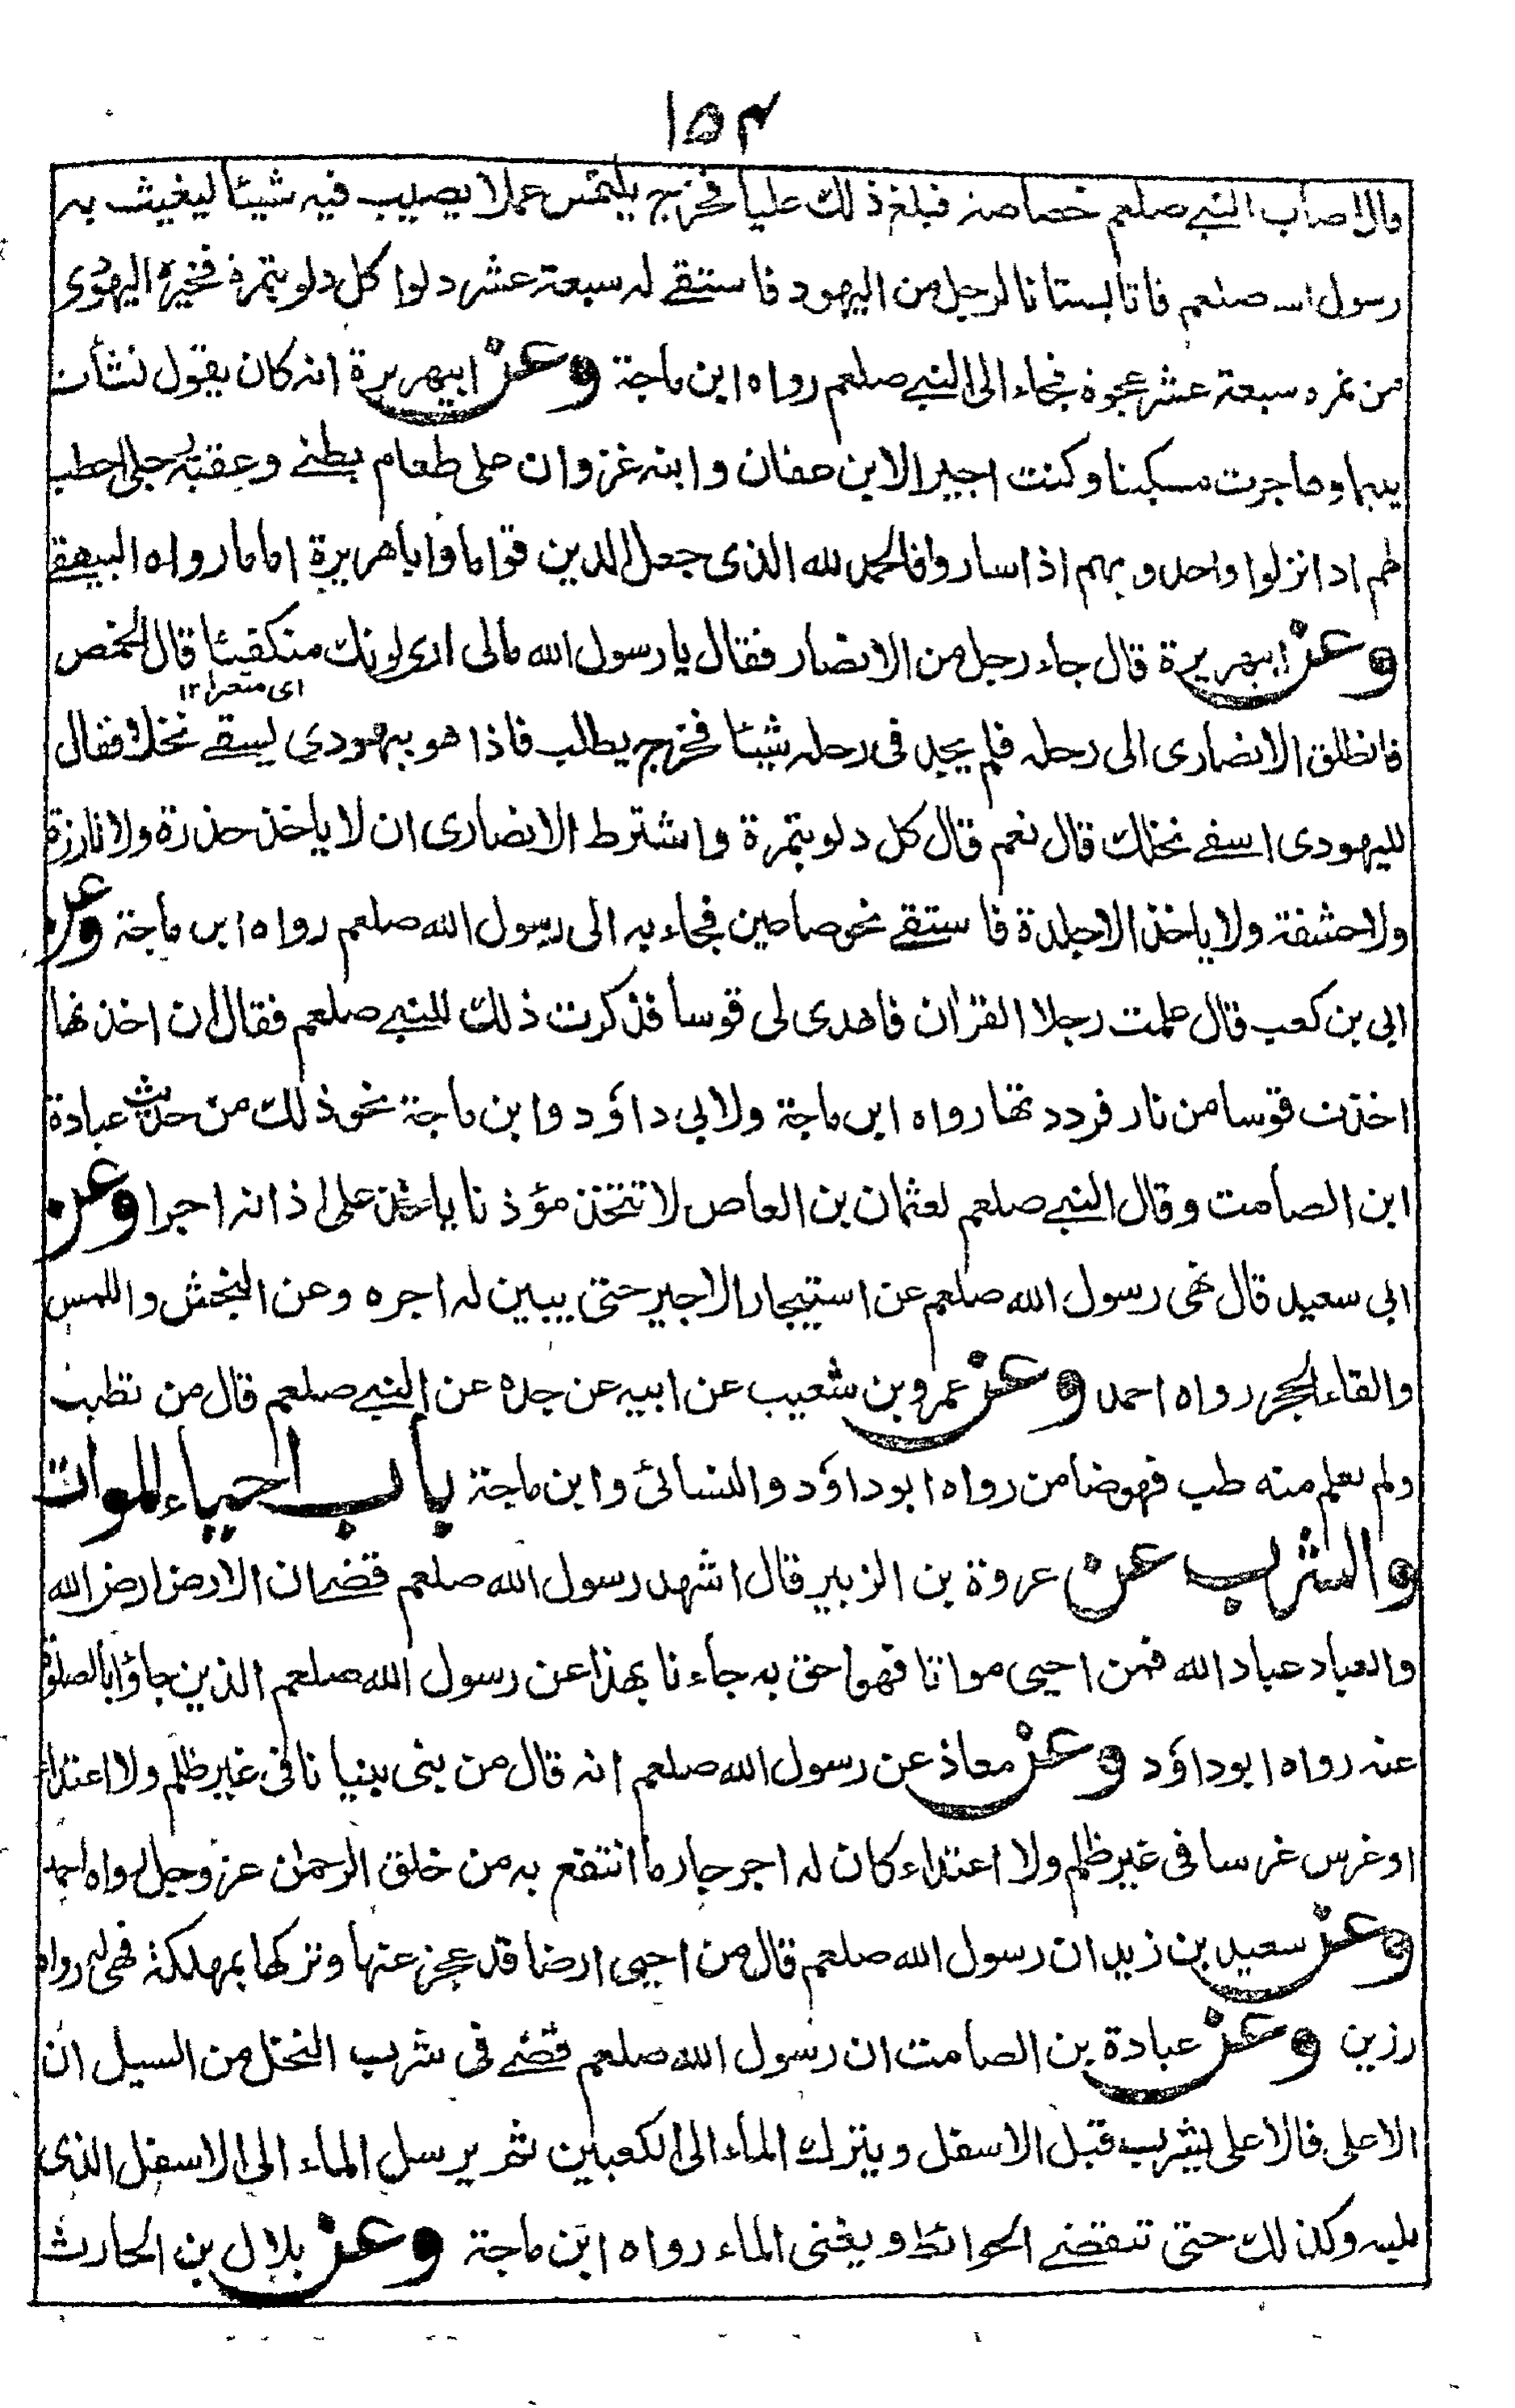 ١٥٤
قال اصاب النبي صلعم خصاصة فبلغ ذلك عليا فخرج يلتمس عملا يصيب فيه شيئا ليغيث به
رسول الله صلعم فاتا بستانا لرجل من اليهود فاستقے له سبعة عشر دلوا كل دلو بتمرة فخيره اليهودى
من تمره سبعة عشر عجوة فجاء الى النبي صلعم رواه ابن ماجة وعن ابيهريرة انه كان يقول نشأت
يتيما وهاجرت مسكينا وكنت اجيرا لابن عفان وابنه غزوان على طعام بطنے وعقبة رجلى احطب
لهم اذا نزلوا واحدو بهم اذا ساروا فالحمد لله الذى جعل الدين قواما وابا هريرة اماما رواه البيهقے
وعن ابيهريرة قال جاء رجل من الانصار فقال يا رسول الله مالى ارى لونك منكفئا قال الخمص
اى متغيرا ١٢
فانطلق الانصارى الى رحله فلم يجد فى رحله شيئا فخرج يطلب فاذا هو بيهودي يسقے نخلا فقال
لليهودى اسقے نخلك قال نعم قال كل دلو بتمرة واشترط الانصارى ان لا ياخذ خذرة ولا تارزة
ولا حشفة ولا ياخذ الا جلدة فاستقے نحو صاعين فجاء به الى رسول الله صلعم رواه ابن ماجة وعن
ابى بن كعب قال علمت رجلا القرٰان فاهدى لى قوسا فذكرت ذلك للنبي صلعم فقال ان اخذتها
اخذت قوسا من نار فرددتها رواه ابن ماجة ولابى داؤد وابن ماجة نحو ذلك من حديث عبادة
ابن الصامت وقال النبي صلعم لعثمان بن العاص لا تتخذ مؤذنا ياخذ على اذانه اجرا وعن
ابى سعيد قال نهى رسول الله صلعم عن استيجار الاجير حتى يبين له اجره وعن النجش واللمس
والقاء الحجر رواه احمد وعن عمرو بن شعيب عن ابيه عن جده عن النبي صلعم قال من تطبب
ولم يعلم منه طب فهو ضامن رواه ابوداؤد والنسائى وابن ماجة باب احياء الموات
والشرب عن عروة بن الزبير قال اشهد رسول الله صلعم قضے ان الارض ارض الله
والعباد عباد الله فمن احيى مواتا فهو احق به جاءنا بهذا عن رسول الله صلعم الذين جاؤا بالصلوة
عنه رواه ابوداؤد وعن معاذ عن رسول الله صلعم انه قال من بنى بنيانا فى غير ظلم ولا اعتداء
او غرس غرسا فى غير ظلم ولا اعتداء كان له اجر جار ما انتفع به من خلق الرحمٰن عز وجل رواه احمد
وعن سعيد بن زيد ان رسول الله صلعم قال من احيى ارضا قد عجز عنها وتركها بمهلكة فهى له رواه
رزين وعن عبادة بن الصامت ان رسول الله صلعم قضے فى شرب النخل من السيل ان
الاعلى فالاعلى يشرب قبل الاسفل ويترك الماء الى الكعبين ثم يرسل الماء الى الاسفل الذى
يليه وكذلك حتى تنقضے الحوائط ويفنى الماء رواه ابن ماجة وعن بلال بن الحارث